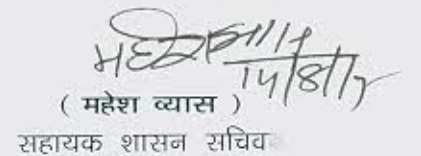 महेश
14/8/17
( महेश व्यास )
सहायक शासन सचिव